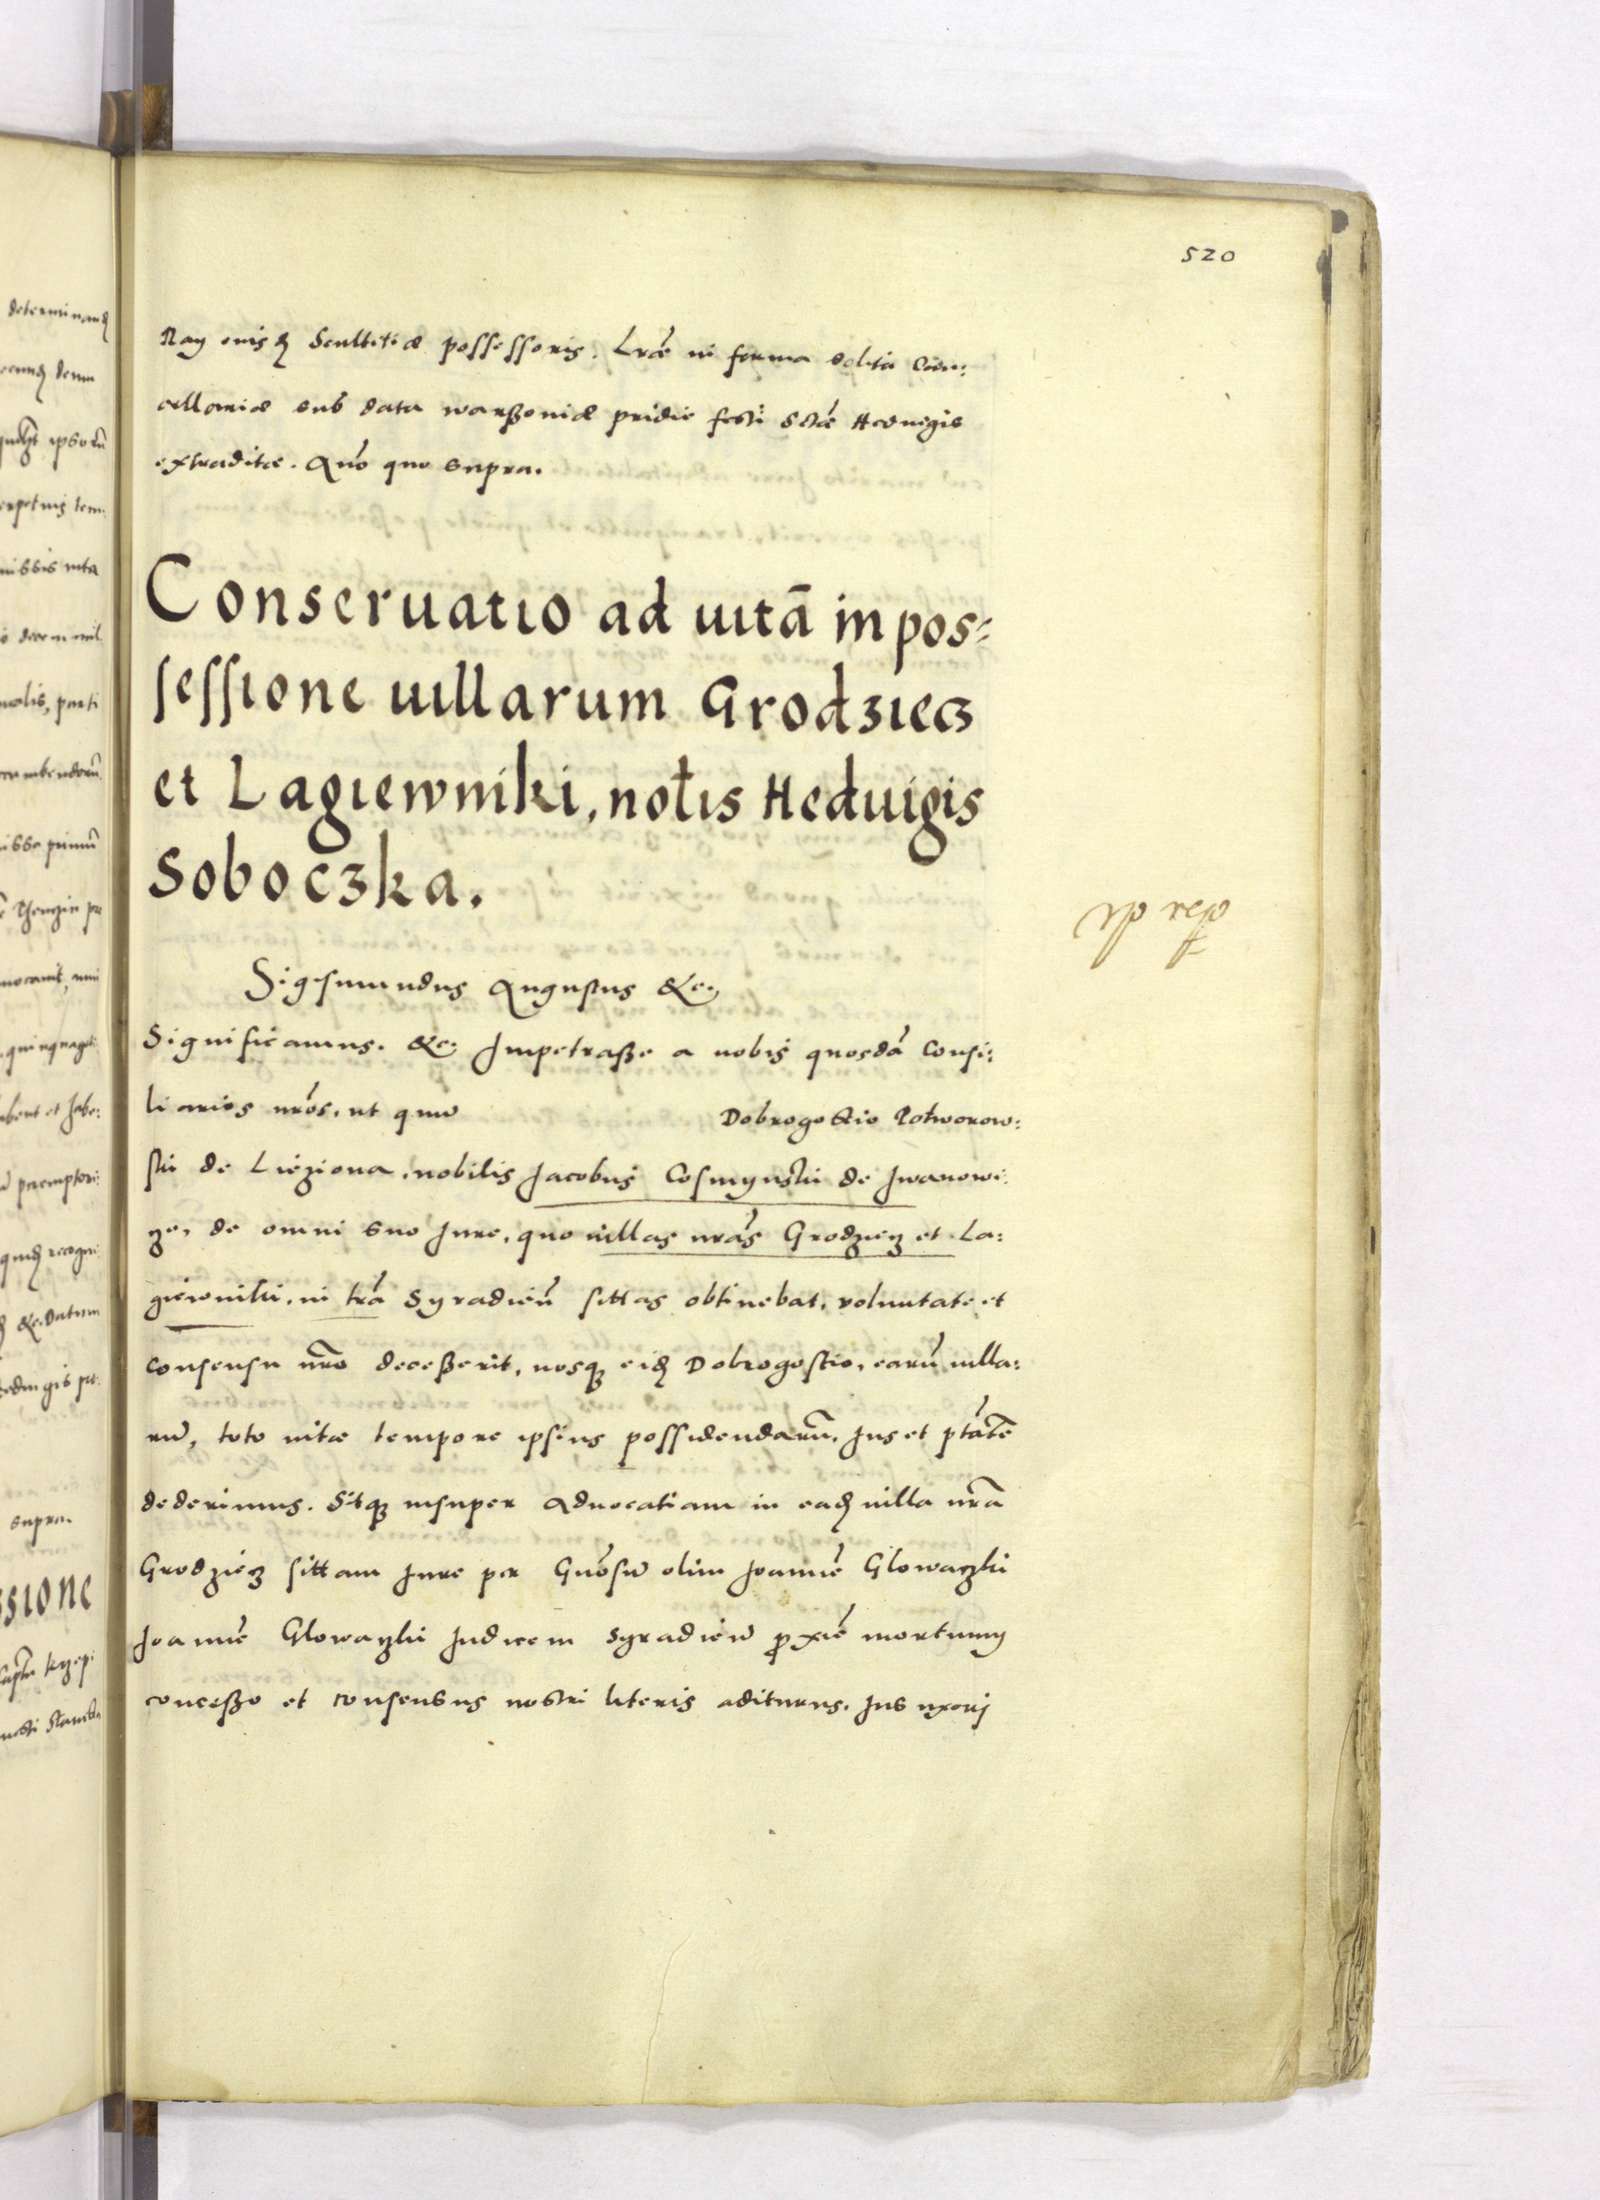 520
eiusđ Scultetiæ possessoris. Lræ in forma solita Can:
cellariæ sub data warßoviæ pridie festi Sctæ Heduigis
extraditæ. Año quo supra.
Conseruatio ad uitā in pos=
sessione uillarum Grodziecz
et Lagiewniki, noƚis Heduigis
Soboczka.
Sigismundus Augustus &c.
Significamus. &c. Impetraße a nobis quosdā Consi:
liarios nr̄os, ut quū Dobrogostio Potworow:
ski de Lieziona, nobilis Jacobus Cosmynski de Jwanowi:
ze, de omni suo Jure, quo uillas nr̄as Grodziecz et La:
giewniki, in tr̄a Syradień sittas obtinebat, voluntate et
consensu nr̄o deceßerit, nosq̨ eiđ Dobrogostio, earū uilla:
rū, toto uitæ tempore ipsius possidendarū, Jus et ptātē
dederimus. Sitq̨ insuper Aduocatiam in eađ uilla nr̄a
Grodziecz sittam Jure per Gnōsū olim Joannē Glowaczki
Joannē Glowaczki Judicem Syradień proxiē mortuum
conceßo et consensus nostri literis aditurus. Jus uxori